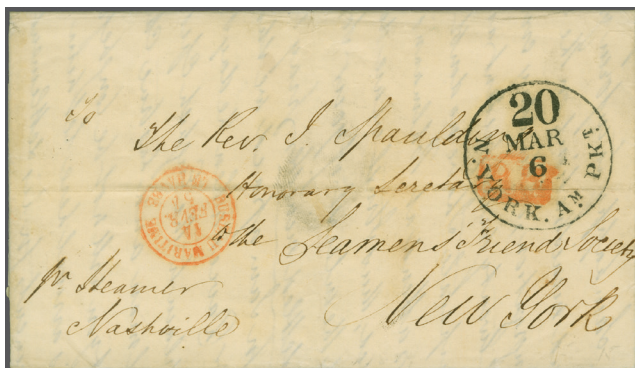 To
The Rev. J. Spaulding
Honorary Secretary
to the Seamens Friend Society
New York
pr Steamer
Nashville
N. YORK. AM PKT
20
MAR
6
MARITIME
14
FEVR